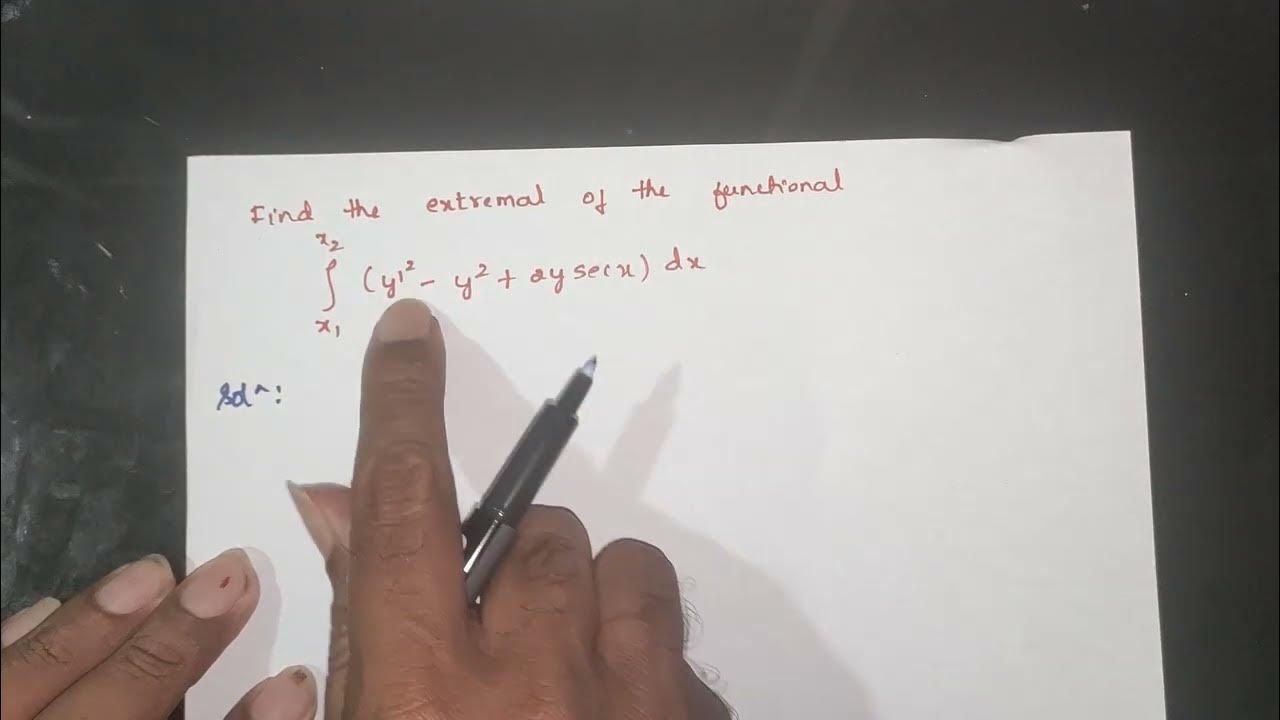 Find the extremal of the functional
x₂
∫ (y'² - y² + 2y sec x) dx
x₁
Solⁿ: